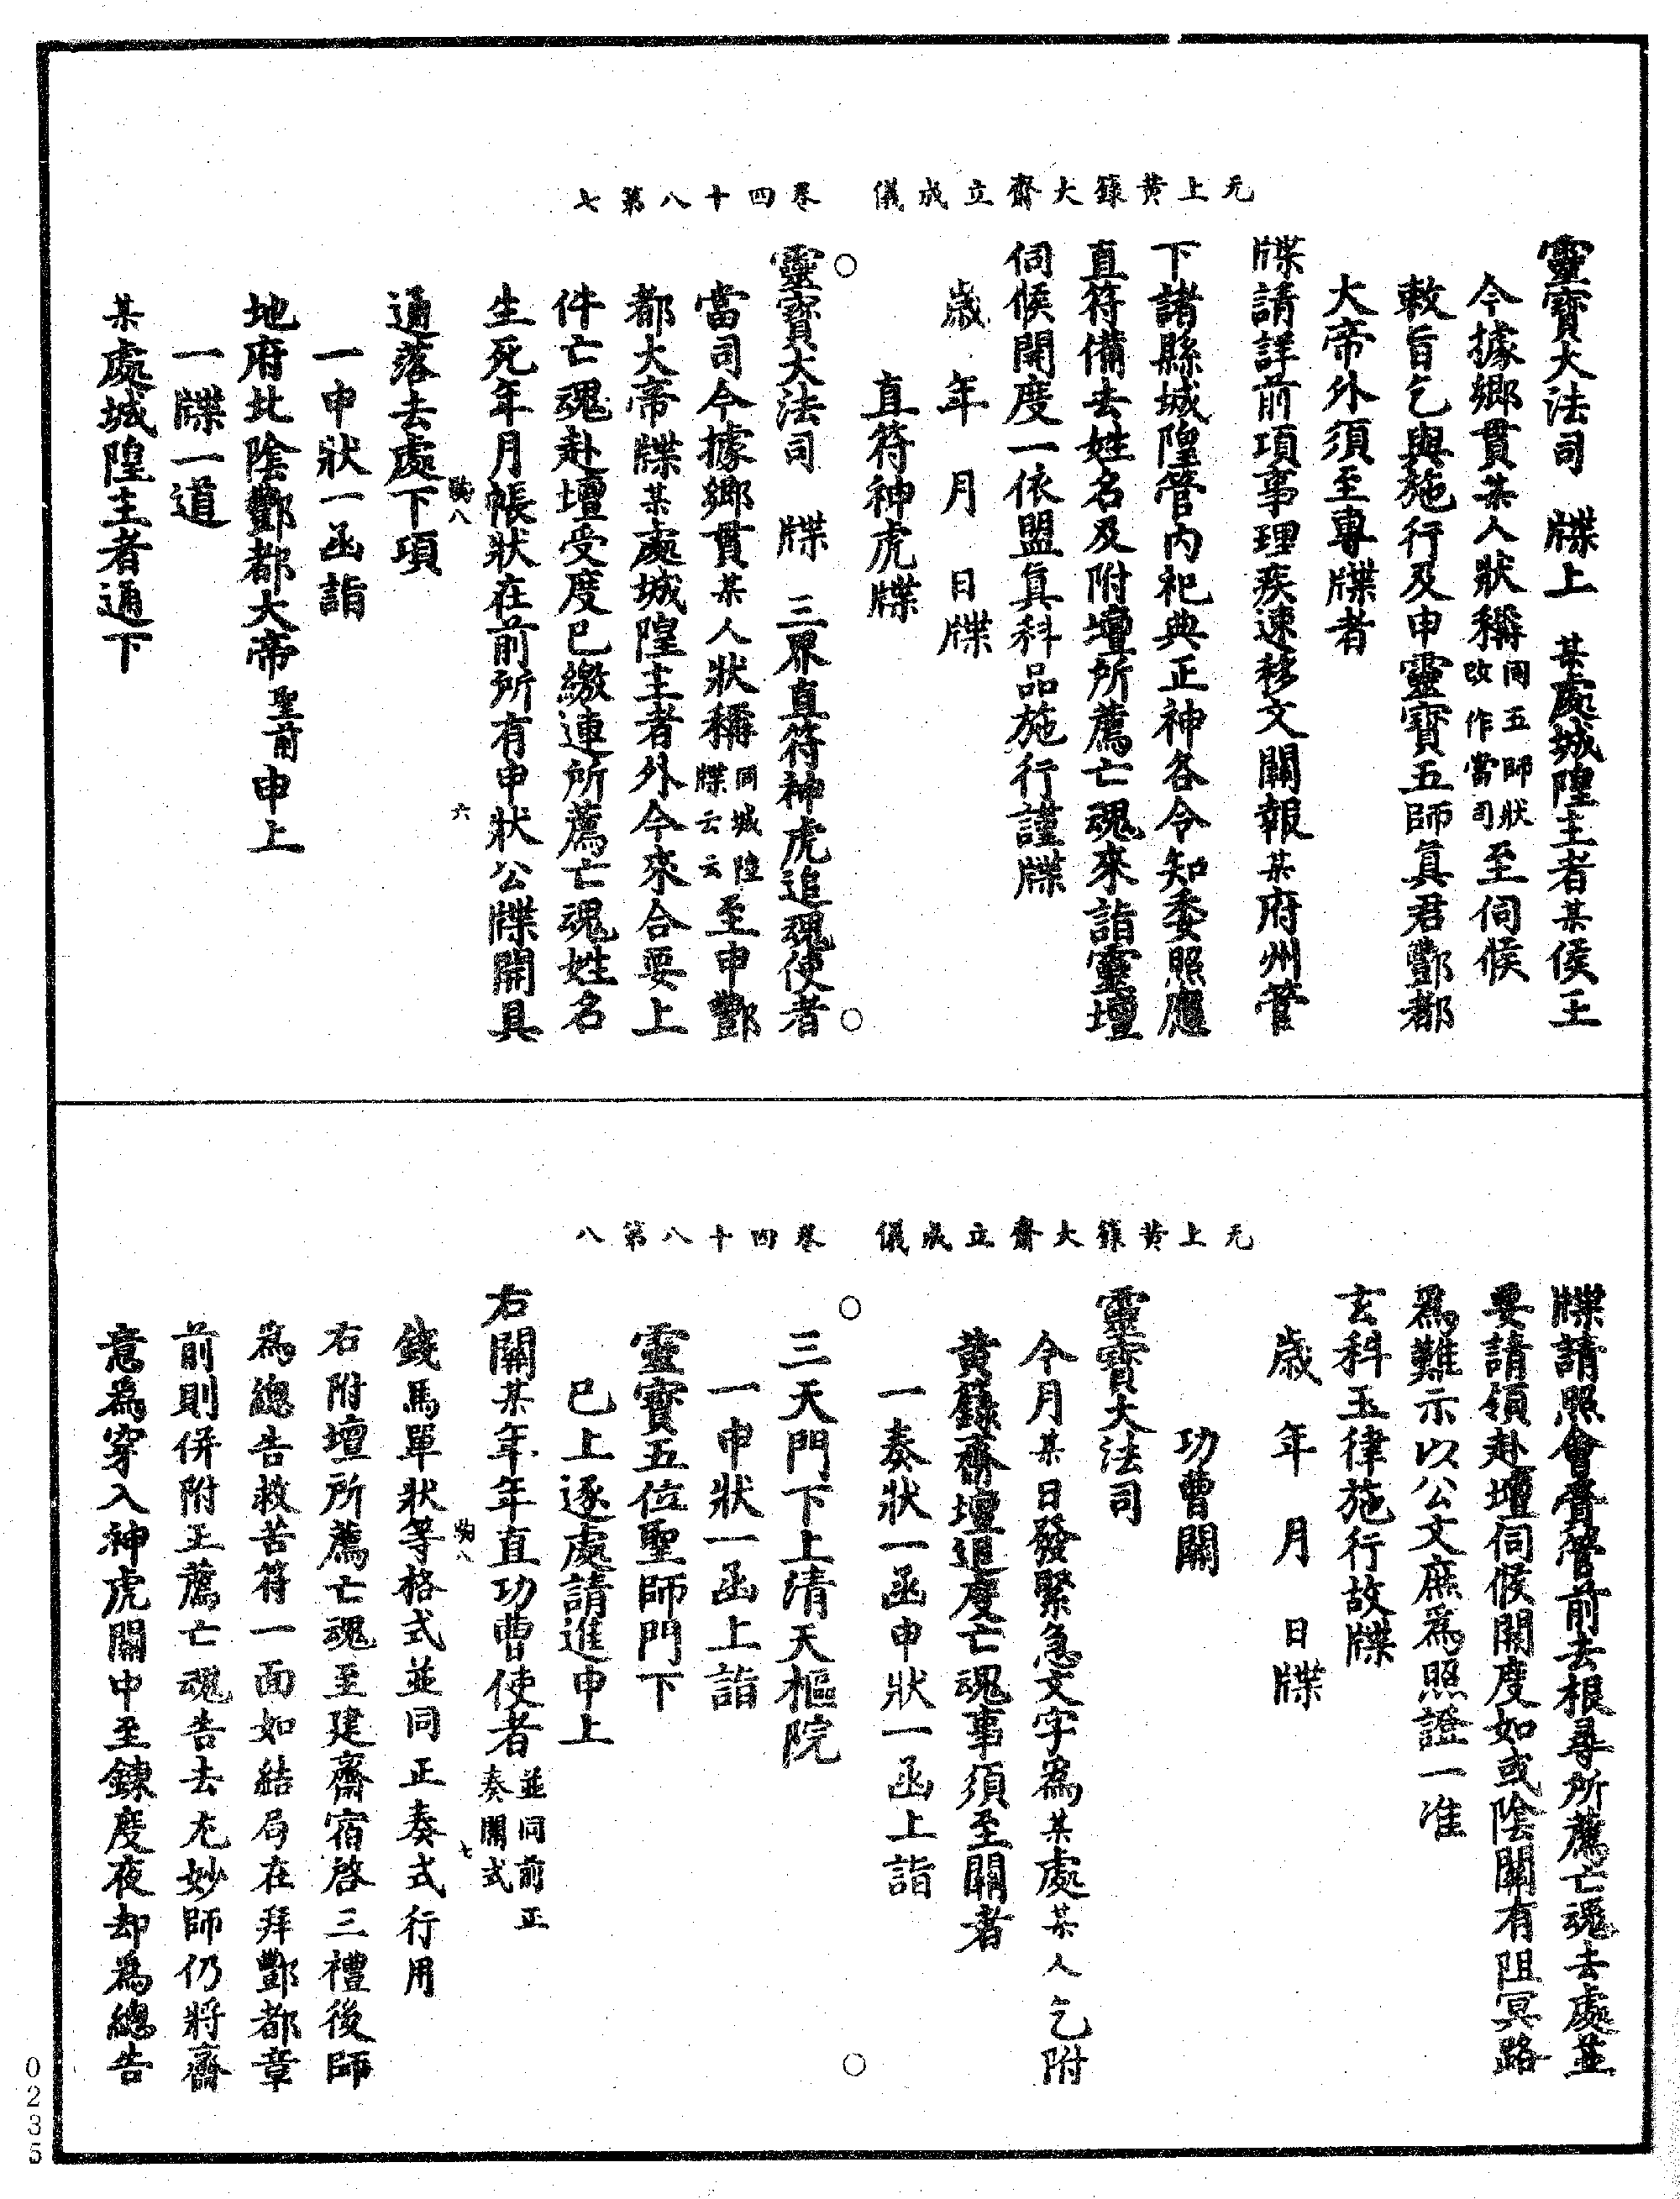 无上黃籙大齋立成儀　卷四十八第七
靈寶大法司　牒上　某處城隍主者某侯王
今據鄉貫某人狀稱同五師狀改作當司至伺候
敕旨乞與施行及申靈寶五師眞君酆都
大帝外須至專牒者
牒請詳前項事理疾速移文關報某府州管
下諸縣城隍管內祀典正神各令知委照應
直符備去姓名及附壇所薦亡魂來詣靈壇
伺候開度一依盟眞科品施行謹牒
歲　年　月　日牒
直符神虎牒
靈寶大法司　牒　三界直符神虎追魂使者
當司今據鄉貫某人狀稱同城隍牒云云至申酆
都大帝牒某處城隍主者外今來合要上
件亡魂赴壇受度已繳連所薦亡魂姓名
生死年月帳狀在前所有申狀公牒開具
鞠八　六
通落去處下項
一申狀一函詣
地府北陰酆都大帝聖前申上
一牒一道
某處城隍主者通下
无上黃籙大齋立成儀　卷四十八第八
牒請照會賫管前去根尋所薦亡魂去處並
要請領赴壇伺候開度如或陰關有阻冥路
爲難示以公文庶爲照證一准
玄科玉律施行故牒
歲　年　月　日牒
功曹關
靈寶大法司
今月某日發緊急文字爲某處某人乞附
黃籙齋壇追度亡魂事須至關者
一奏狀一函申狀一函上詣
三天門下上清天樞院
一申狀一函上詣
靈寶五位聖師門下
已上逐處請進申上
右關某年年直功曹使者並同前正奏關式
鞠八　七
錢馬單狀等格式並同正奏式行用
右附壇所薦亡魂至建齋宿啓三禮後師
爲總告救苦符一面如結局在拜酆都章
前則併附正薦亡魂告去尤妙師仍將齋
意爲穿入神虎關中至鍊度夜却爲總告
0235